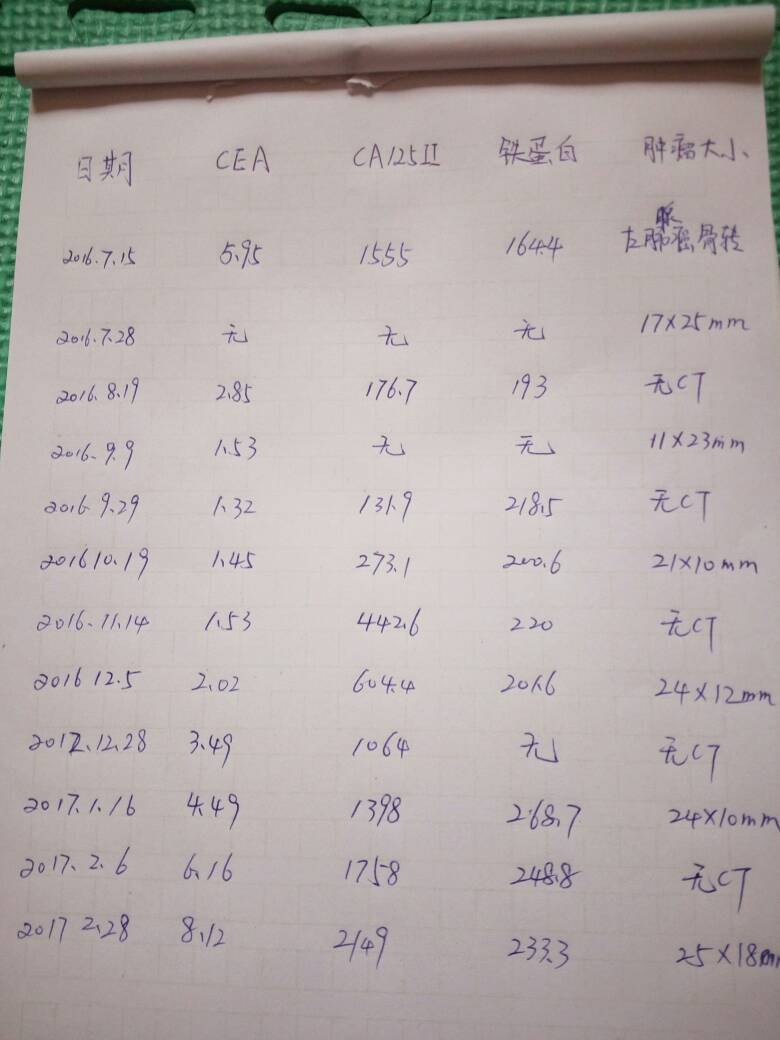 日期 CEA CA125II 铁蛋白 肿瘤大小
腺
2016.7.15 5.95 1555 164.4 左肺癌,骨转
2016.7.28 无 无 无 17×25mm
2016.8.19 2.85 176.7 193 无CT
2016.9.9 1.53 无 无 11×23mm
2016.9.29 1.32 131.9 218.5 无CT
2016 10.19 1.45 273.1 200.6 21×10mm
2016.11.14 1.53 442.6 220 无CT
2016 12.5 2.02 604.4 201.6 24×12mm
2012.12.28 3.49 1064 无 无CT
2017.1.16 4.49 1398 268.7 24×10mm
2017.2.6 6.16 1758 248.8 无CT
2017 2.28 8.12 2149 233.3 25×18mm